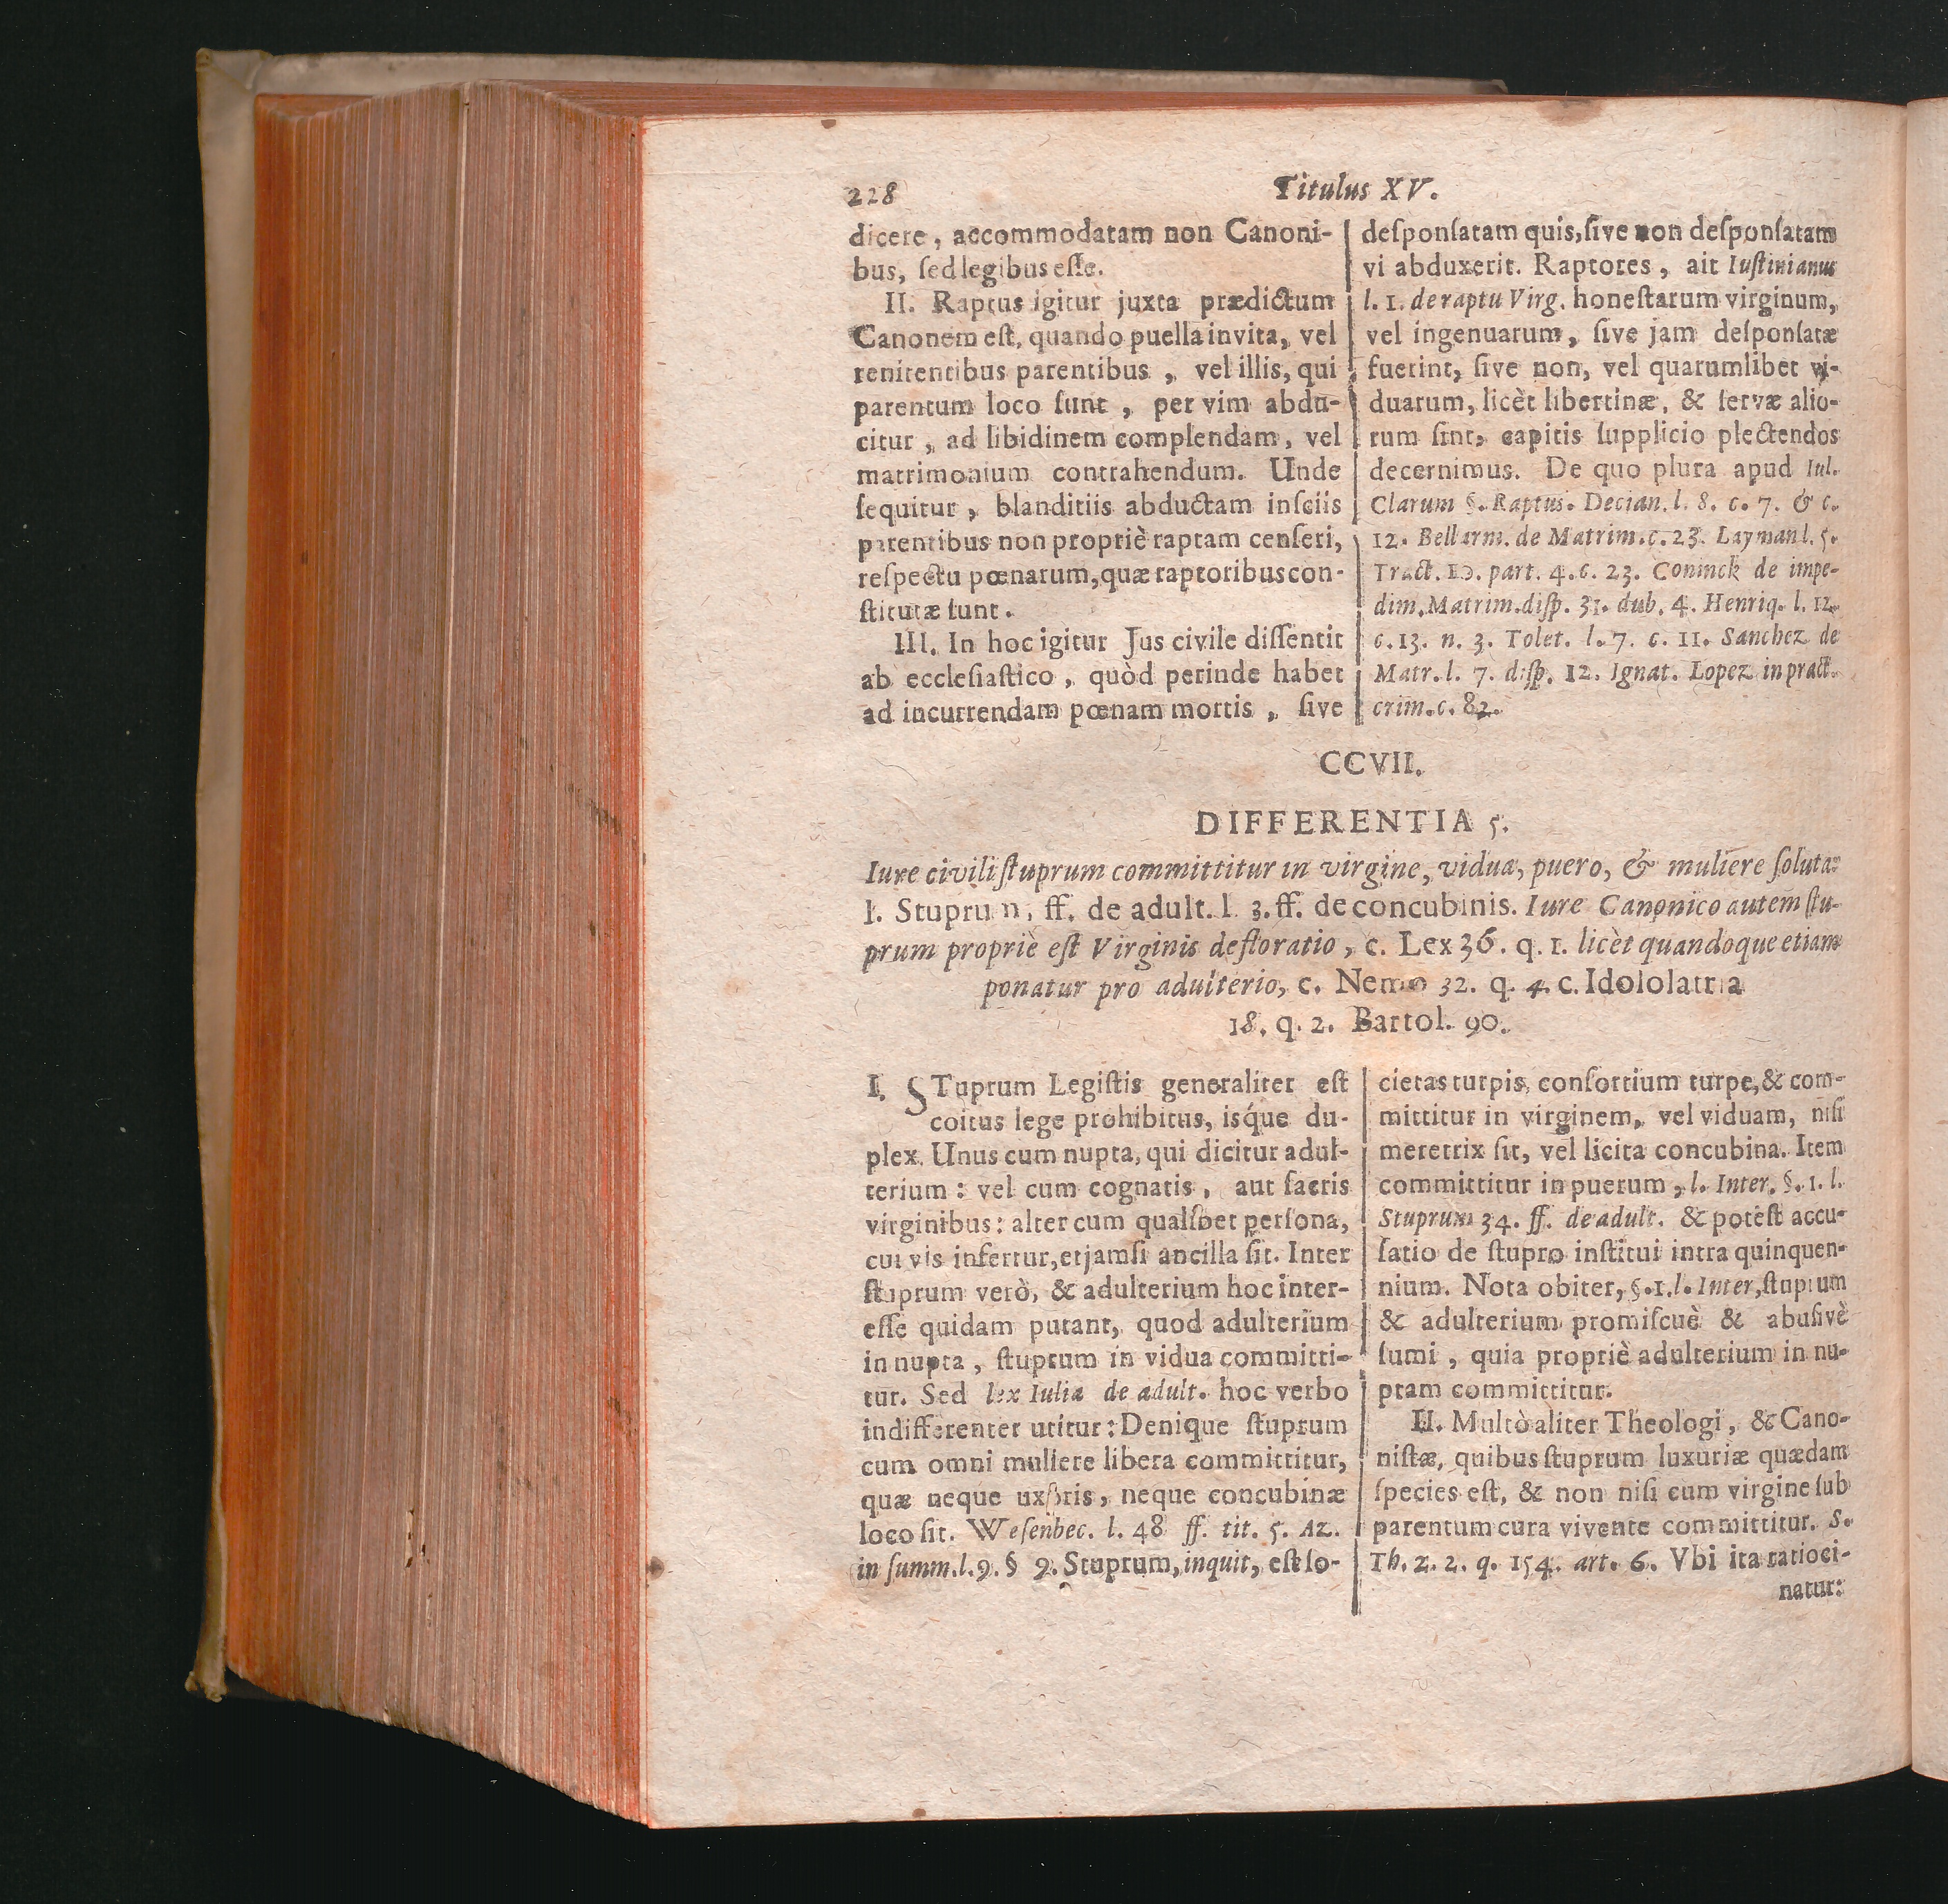 228
Titulus XV.
dicere, accommodatam non Canoni-
bus, ſed legibus eſſe.
II. Raptus igitur juxta prædictum
Canonem eſt, quando puella invita, vel
renitentibus parentibus, vel illis, qui
parentum loco ſunt, per vim abdu-
citur, ad libidinem complendam, vel
matrimonium contrahendum. Unde
ſequitur, blanditiis abductam inſciis
parentibus non propriè raptam cenſeri,
reſpectu pœnarum, quæ raptoribus con-
ſtitutæ ſunt.
III. In hoc igitur Jus civile diſſentit
ab eccleſiaſtico, quòd perinde habet
ad incurrendam pœnam mortis, ſive
deſponſatam quis, ſive non deſponſatam
vi abduxerit. Raptores, ait Iuſtinianus
l. 1. de raptu Virg. honeſtarum virginum,
vel ingenuarum, ſive jam deſponſatæ
fuerint, ſive non, vel quarumlibet vi-
duarum, licèt libertinæ, & ſervæ alio-
rum ſint, capitis ſupplicio plectendos
decernimus. De quo plura apud Iul.
Clarum §. Raptus. Decian. l. 8. c. 7. & c.
12. Bellarm. de Matrim. c. 23. Layman l. 5.
Tract. 10. part. 4. c. 23. Coninck de impe-
dim. Matrim. diſp. 31. dub. 4. Henriq. l. 12.
c. 13. n. 3. Tolet. l. 7. c. 11. Sanchez de
Matr. l. 7. diſp. 12. Ignat. Lopez in pract.
crim. c. 82.
CCVII.
DIFFERENTIA 5.
Iure civili ſtuprum committitur in virgine, vidua, puero, & muliere ſoluta.
l. Stuprum, ff. de adult. l. 3. ff. de concubinis. Iure Canonico autem ſtu-
prum propriè eſt Virginis defloratio, c. Lex 36. q. 1. licèt quandoque etiam
ponatur pro adulterio, c. Nemo 32. q. 4. c. Idololatria
18. q. 2. Bartol. 90.
I. STuprum Legiſtis generaliter eſt
coitus lege prohibitus, isq́ue du-
plex. Unus cum nupta, qui dicitur adul-
terium: vel cum cognatis, aut ſacris
virginibus: alter cum qualibet perſona,
cui vis infertur, etjamſi ancilla ſit. Inter
ſtuprum verò, & adulterium hoc inter-
eſſe quidam putant, quod adulterium
in nupta, ſtuprum in vidua committi-
tur. Sed lex Iulia de adult. hoc verbo
indifferenter utitur: Denique ſtuprum
cum omni muliere libera committitur,
quæ neque uxoris, neque concubinæ
loco ſit. Weſenbec. l. 48 ff. tit. 5. Az.
in ſumm. l. 9. § 9. Stuprum, inquit, eſt ſo-
cietas turpis, conſortium turpe, & com-
mittitur in virginem, vel viduam, niſi
meretrix ſit, vel licita concubina. Item
committitur in puerum, l. Inter. §. 1. l.
Stuprum 34. ff. de adult. & poteſt accu-
ſatio de ſtupro inſtitui intra quinquen-
nium. Nota obiter, §. 1. l. Inter, ſtuprum
& adulterium promiſcuè & abuſivè
ſumi, quia propriè adulterium in nu-
ptam committitur.
II. Multò aliter Theologi, & Cano-
niſtæ, quibus ſtuprum luxuriæ quædam
ſpecies eſt, & non niſi cum virgine ſub
parentum cura vivente committitur. S.
Th. 2. 2. q. 154. art. 6. Vbi ita ratioci-
natur: